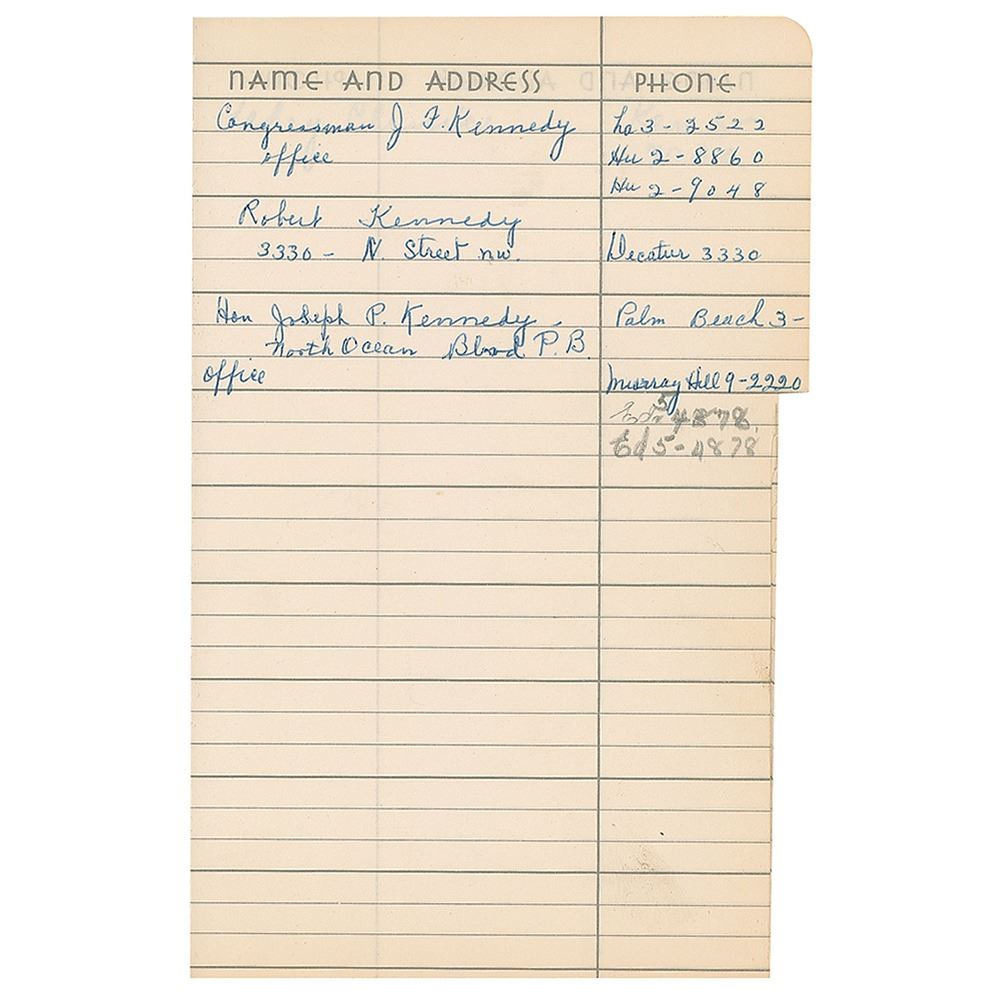 NAME AND ADDRESS PHONE
Congressman J F. Kennedy
office
La 3-2522
Hu 2-8860
Hu 2-9048
Robert Kennedy
3330 - N. Street nw.
Decatur 3330
Hon Joseph P. Kennedy -
North Ocean Blvd P.B.
Palm Beach 3-
office
Murray Hill 9-2220
5 4878.
Ed 5-4878